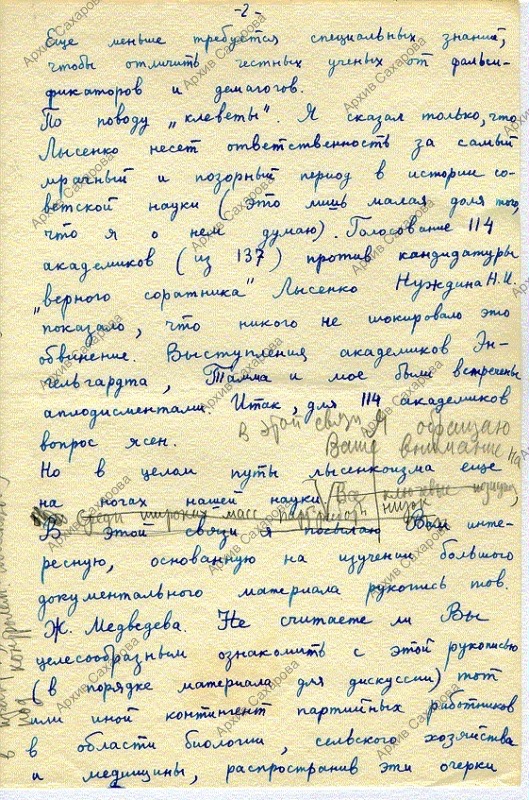 -2-
Еще меньше требуется специальных знаний,
чтобы отличить честных ученых от фальси-
фикаторов и демагогов.
По поводу „клеветы". Я сказал только, что
Лысенко несет ответственность за самый
мрачный и позорный период в истории со-
ветской науки (это лишь малая доля того,
что я о нем думаю). Голосование 114
академиков (из 137) против кандидатуры
„верного соратника" Лысенко Нуждина Н.И.
показало, что никого не шокировало это
обвинение. Выступления академиков Эн-
гельгардта, Тамма и мое были встречены
аплодисментами. Итак, для 114 академиков
вопрос ясен.
В этой связи Я обращаю
Ваше внимание на
Но в целом путы лысенкоизма еще
на ногах нашей науки
среди широких масс
В этой связи я посылаю Вам инте-
ресную, основанную на изучении большого
документального материала рукопись тов.
Ж. Медведева. Не считаете ли Вы
целесообразным ознакомить с этой рукописью
(в порядке материала для дискуссии) тот
или иной контингент партийных работников
в области биологии, сельского хозяйства
и медицины, распространив эти очерки
Архив Сахарова